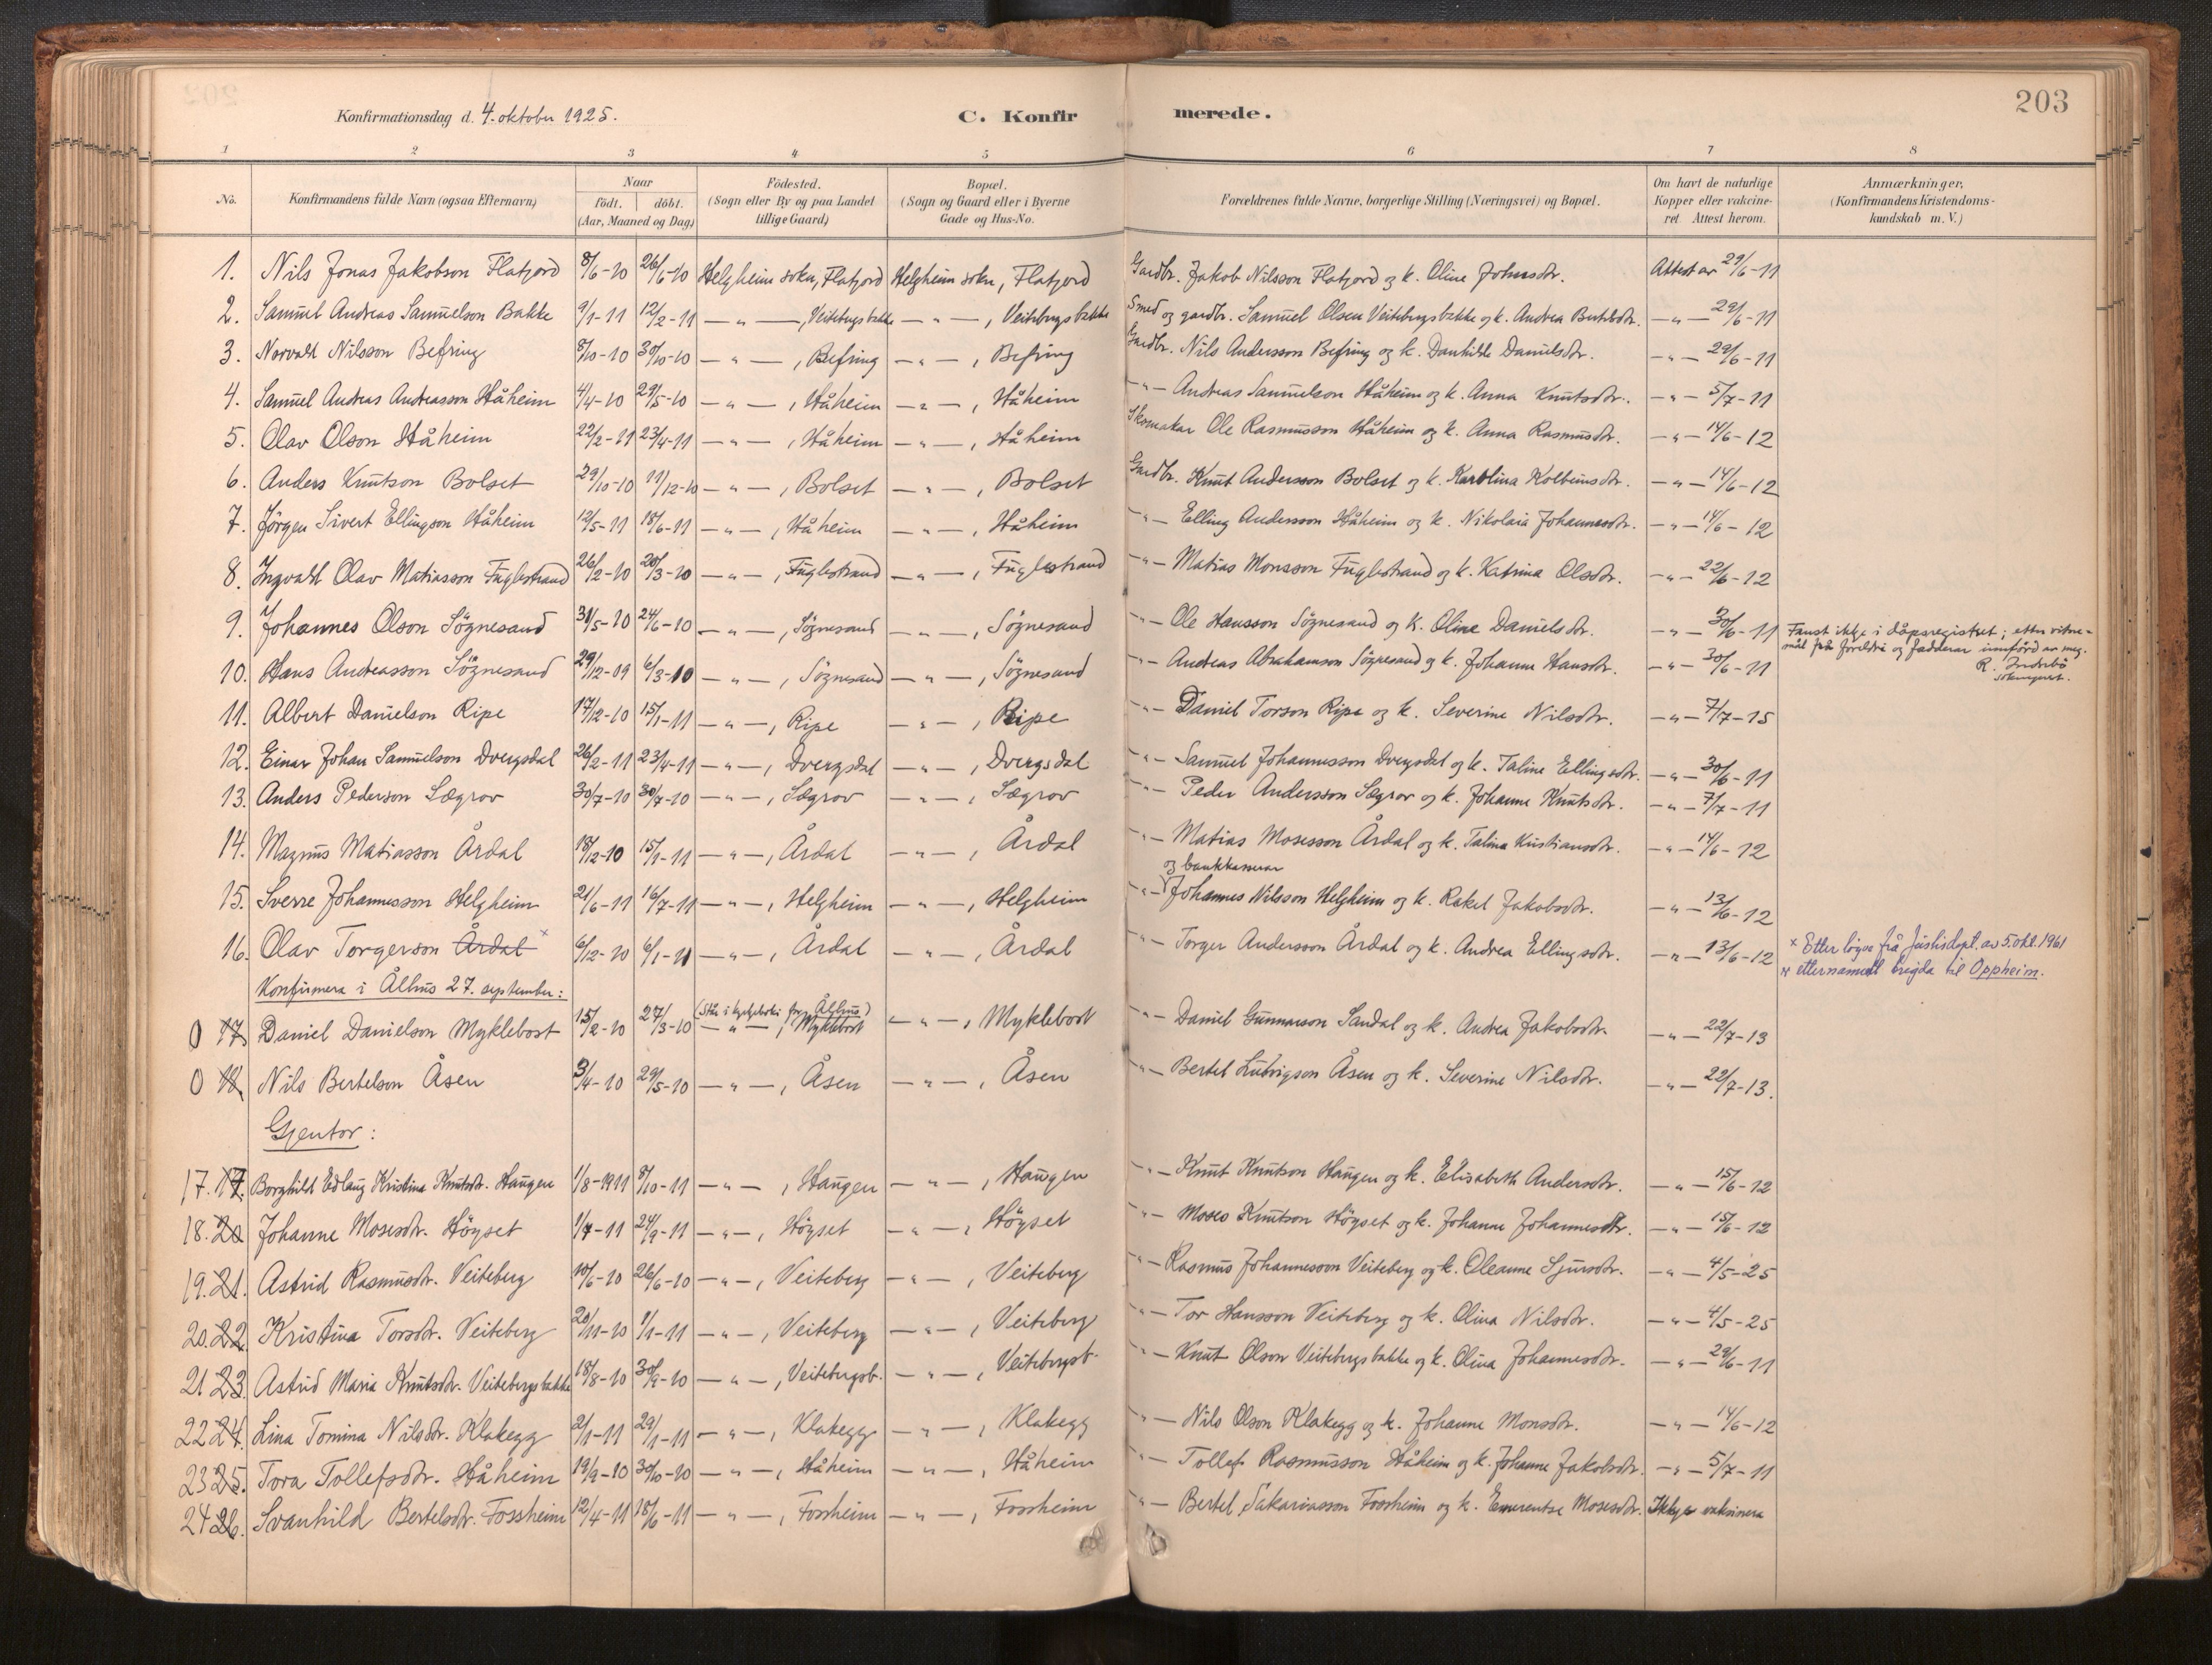 203
Konfirmationsdag d. 4. oktober 1925.
C. Konfirmerede.
1 2 3 4 5 6 7 8
No. Konfirmandens fulde Navn (ogsaa Efternavn) Naar födt. döbt. (Aar, Maaned og Dag) Födested. (Sogn eller By og paa Landet tillige Gaard) Bopæl. (Sogn og Gaard eller i Byerne Gade og Hus-No. Forældrenes fulde Navne, borgerlige Stilling (Næringsvei) og Bopæl. Om havt de naturlige Kopper eller vakcineret. Attest herom. Anmærkninger, (Konfirmandens Kristendomskundskab m. V.)
1. Nils Jonas Jakobson Flatjord 8/6-10 26/6-10 Helgheim sokn, Flatjord Helgheim sokn, Flatjord Gardbr. Jakob Nilsson Flatjord og k. Oline Johnsdtr. Attest av 29/6-11
2. Samuel Andreas Samuelson Bakke 9/1-11 12/2-11 — " —, Veitebergsbakke — " —, Veitebergsbakke Smed og gardbr. Samuel Olsen Veitebergsbakke og k. Andrea Bertelsdtr. — " — 29/6-11
3. Norvald Nilsson Befring 8/10-10 30/10-10 — " —, Befring — " —, Befring Gardbr. Nils Andersson Befring og k. Danhilde Danielsdtr. — " — 29/6-11
4. Samuel Andreas Andreasson Håheim 4/4-10 29/5-10 — " —, Håheim — " —, Håheim — " — Andreas Samuelson Håheim og k. Anna Knutsdtr. — " — 5/7-11
5. Olav Olson Håheim 22/2-11 23/4-11 — " —, Håheim — " —, Håheim Skomakar Ole Rasmusson Håheim og k. Anna Rasmusdtr. — " — 14/6-12
6. Anders Knutson Bolset 29/10-10 11/12-10 — " —, Bolset — " —, Bolset Gardbr. Knut Andersson Bolset og k. Karolina Kolbeinsdtr. — " — 14/6-12
7. Jörgen Sivert Ellingson Håheim 12/5-11 18/6-11 — " —, Håheim — " —, Håheim — " — Elling Andersson Håheim og k. Nikolaia Johannesdtr. — " — 14/6-12
8. Ingvald Olav Matiasson Fuglestrand 26/2-10 20/3-10 — " —, Fuglestrand — " —, Fuglestrand — " — Matias Monsson Fuglestrand og k. Katrina Olsdtr. — " — 22/6-12
9. Johannes Olson Sögnesand 31/5-10 24/6-10 — " —, Sögnesand — " —, Sögnesand — " — Ole Hansson Sögnesand og k. Oline Danielsdtr. — " — 30/6-11 Funst ikkje i dåpsregistret; etter vitne-
mål frå foreldre og fadderar innförd av meg.
10. Hans Andreasson Sögnesand 29/12-09 6/3-10 — " —, Sögnesand — " —, Sögnesand — " — Andreas Abrahamson Sögnesand og k. Johanne Hansdtr. — " — 30/6-11 R. Inderbö
sokneprest.
11. Albert Danielson Ripe 17/12-10 15/1-11 — " —, Ripe — " —, Ripe — " — Daniel Torson Ripe og k. Severine Nilsdtr. — " — 7/7-15
12. Einar Johan Samuelson Dvergsdal 26/2-11 23/4-11 — " —, Dvergsdal — " —, Dvergsdal — " — Samuel Johannesson Dvergsdal og k. Taline Ellingsdtr. — " — 30/6-11
13. Anders Pederson Sægrov 30/7-10 30/7-10 — " —, Sægrov — " —, Sægrov — " — Peder Andersson Sægrov og k. Johanne Knutsdtr. — " — 7/7-11
14. Magnus Matiasson Årdal 18/12-10 15/1-11 — " —, Årdal — " —, Årdal — " — Matias Mosesson Årdal og k. Talina Kristiansdtr. — " — 14/6-12
og bankkasserar
15. Sverre Johannesson Helgheim 21/6-11 16/7-11 — " —, Helgheim — " —, Helgheim — " — Johannes Nilsson Helgheim og k. Rakel Jakobsdtr. — " — 13/6-12
16. Olav Torgerson Årdal x 6/12-10 6/1-11 — " —, Årdal — " —, Årdal — " — Torger Andersson Årdal og k. Andrea Ellingsdtr. — " — 13/6-12 x Etter löyve frå Justisdept. av 5. okt. 1961
etternamnet brigda til Oppheim.
Konfirmera i Ålhus 27. september:
(Står i kyrkjeboki for Ålhus)
0 17. Daniel Danielson Myklebost 15/2-10 27/3-10 — " —, Myklebost — " —, Myklebost — " — Daniel Gunnarson Sandal og k. Andrea Jakobsdtr. — " — 22/7-13
0 18. Nils Bertelson Åsen 3/4-10 29/5-10 — " —, Åsen — " —, Åsen — " — Bertel Ludvigson Åsen og k. Severine Nilsdtr. — " — 22/7-13.
Gjentor:
17. 17. Borghild Edlaug Kristina Knutsdtr. Haugen 1/8-1911 8/10-11 — " —, Haugen — " —, Haugen — " — Knut Knutson Haugen og k. Elisabeth Andersdtr. — " — 15/6-12
18. 20 Johanne Mosesdtr. Höyset 1/7-11 24/9-11 — " —, Höyset — " —, Höyset — " — Moses Knutson Höyset og k. Johanne Johannesdtr. — " — 15/6-12
19. 21. Astrid Rasmusdtr. Veiteberg 10/6-10 26/6-10 — " —, Veiteberg — " —, Veiteberg — " — Rasmus Johannesson Veiteberg og k. Oleanne Sjursdtr. — " — 4/5-25
20. 22. Kristina Torsdtr. Veiteberg 20/11-10 1/1-11 — " —, Veiteberg — " —, Veiteberg — " — Tor Hansson Veiteberg og k. Olina Nilsdtr. — " — 4/5-25
21 23. Astrid Maria Knutsdtr. Veitebergsbakke 18/8-10 30/9-10 — " —, Veitebergsb. — " —, Veitebergsb. — " — Knut Olson Veitebergsbakke og k. Olina Johannesdtr. — " — 29/6-11
22 24. Lina Tomina Nilsdtr. Klakegg 2/1-11 29/1-11 — " —, Klakegg — " —, Klakegg — " — Nils Olson Klakegg og k. Johanne Monsdtr. — " — 14/6-12
23 25. Tora Tollefsdtr. Håheim 19/9-10 30/10-10 — " —, Håheim — " —, Håheim — " — Tollef Rasmusson Håheim og k. Johanne Jakobsdtr. — " — 5/7-11
24 26. Svanhild Bertelsdtr. Fossheim 12/4-11 18/6-11 — " —, Fossheim — " —, Fossheim — " — Bertel Sakariasson Fossheim og k. Emerentse Mosesdtr. Ikkje vaksinera